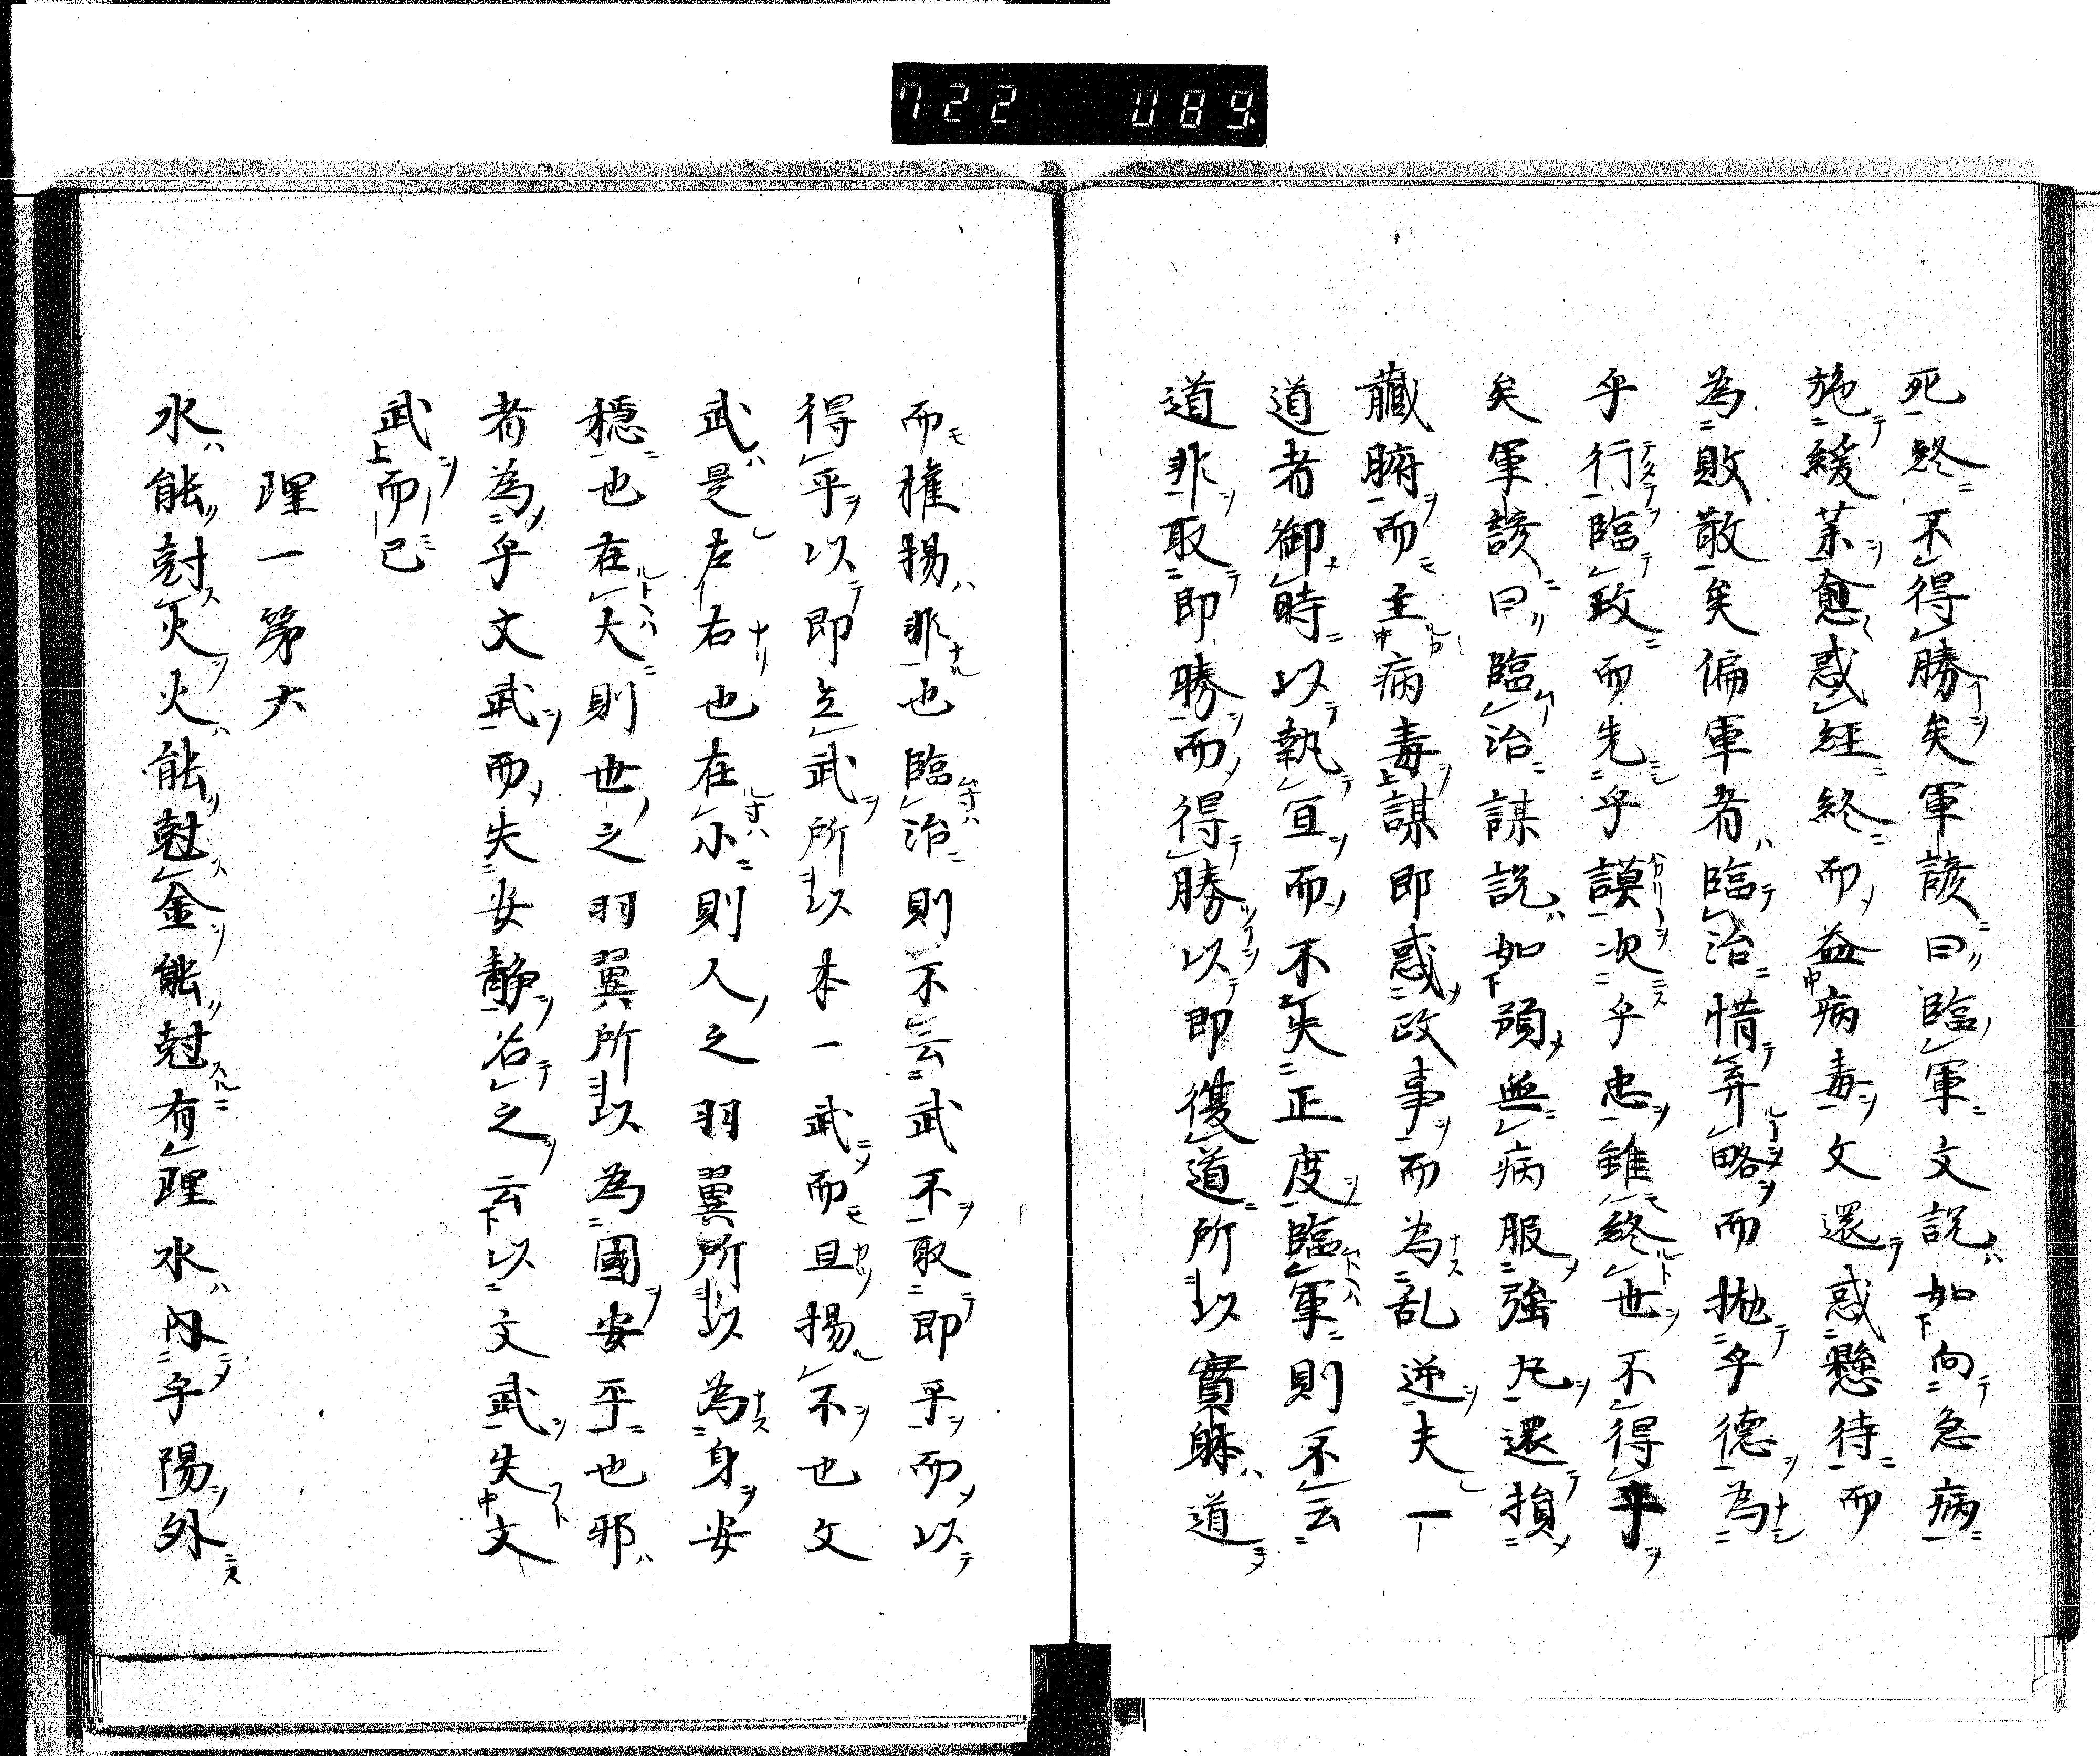 722 089
死終不得勝矣軍諺曰臨軍文説如向急病
施緩薬愈惑経終而益病毒文還惑懸待而
為敗散矣偏軍者臨治惜弃略而抛乎德為
乎行臨政而先乎謨次乎忠雖終世不得乎
矣軍諺曰臨治謀説如預無病服強丸還損
臓腑而主病毒謀即惑政事而為乱逆夫一
道者御時以執宜而不失正度臨軍則不云
道非取即勝而得勝以即復道所以實躰道
而権揚非也臨治則不云武不取即乎而以
得乎以即立武所以本一武而且揚不也文
武是左右也在小則人之羽翼所以為身安
穏也在大則世之羽翼所以為國安平也邪
者為乎文武而失安静名之云以文武失文
武而已
理一第六
水能尅火火能尅金能尅有理水内乎陽外